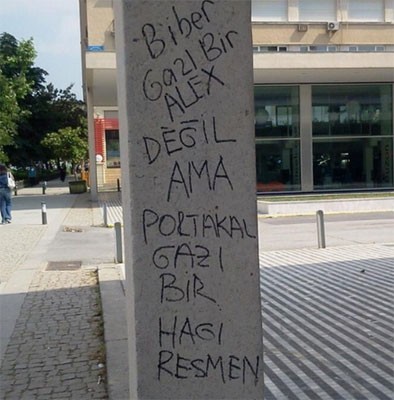 Biber
Gazi Bir
ALEX
DEĞİL
AMA
PORTAKAL
GAZI
BİR
HAGI
RESMEN